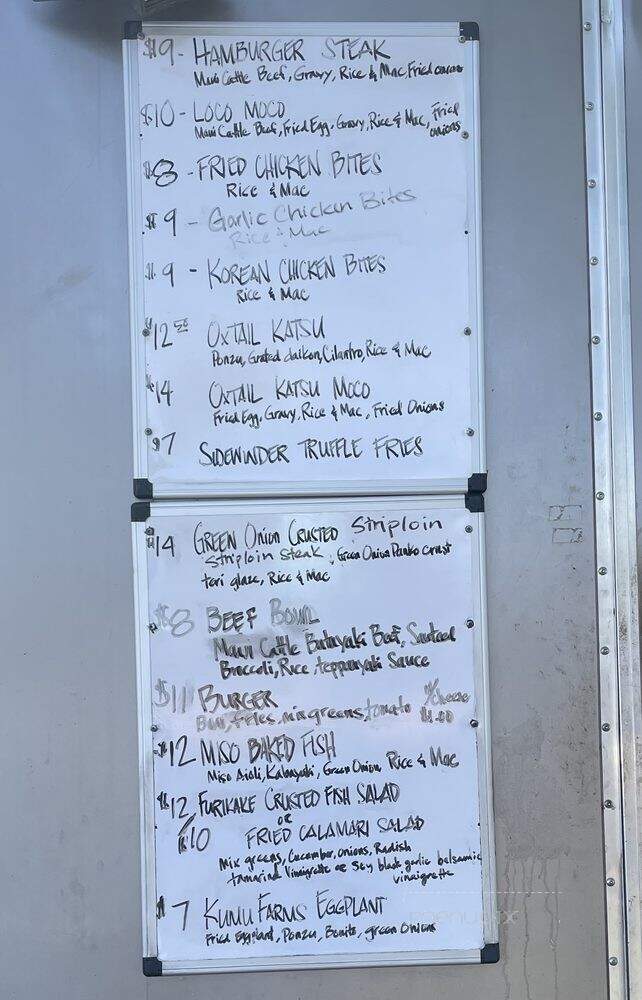 $9 - HAMBURGER STEAK
Maui Cattle Beef, Gravy, Rice & Mac, Fried onions
$10 - LOCO MOCO
Maui Cattle Beef, Fried Egg, Gravy, Rice & Mac, Fried onions
$8 - FRIED CHICKEN BITES
Rice & Mac
$9 - Garlic Chicken Bites
Rice & Mac
$9 - KOREAN CHICKEN BITES
Rice & Mac
$12 50 OXTAIL KATSU
Ponzu, Grated daikon, Cilantro, Rice & Mac
$14 OXTAIL KATSU MOCO
Fried Egg, Gravy, Rice & Mac, Fried Onions
$7 SIDEWINDER TRUFFLE FRIES
$14 GREEN Onion CRUSTED Striploin
Striploin Steak, Green Onion Panko crust
teri glaze, Rice & Mac
$8 BEEF BOWL
Maui Cattle Butayaki Beef, Sauteed
Broccoli, Rice, teppanyaki Sauce
$11 BURGER
fries, mix greens, tomato w/cheese $1.00
$12 MISO BAKED FISH
Miso Aioli, Kabayaki, Green Onion, Rice & Mac
$12 FURIKAKE CRUSTED FISH SALAD
OR
$10 FRIED CALAMARI SALAD
Mix greens, Cucumber, Onions, Radish
tamarind Vinaigrette or Soy black garlic belsamic
vinaigrette
$7 KUMU FARMS EGGPLANT
Fried Eggplant, Ponzu, Bonito, green Onions